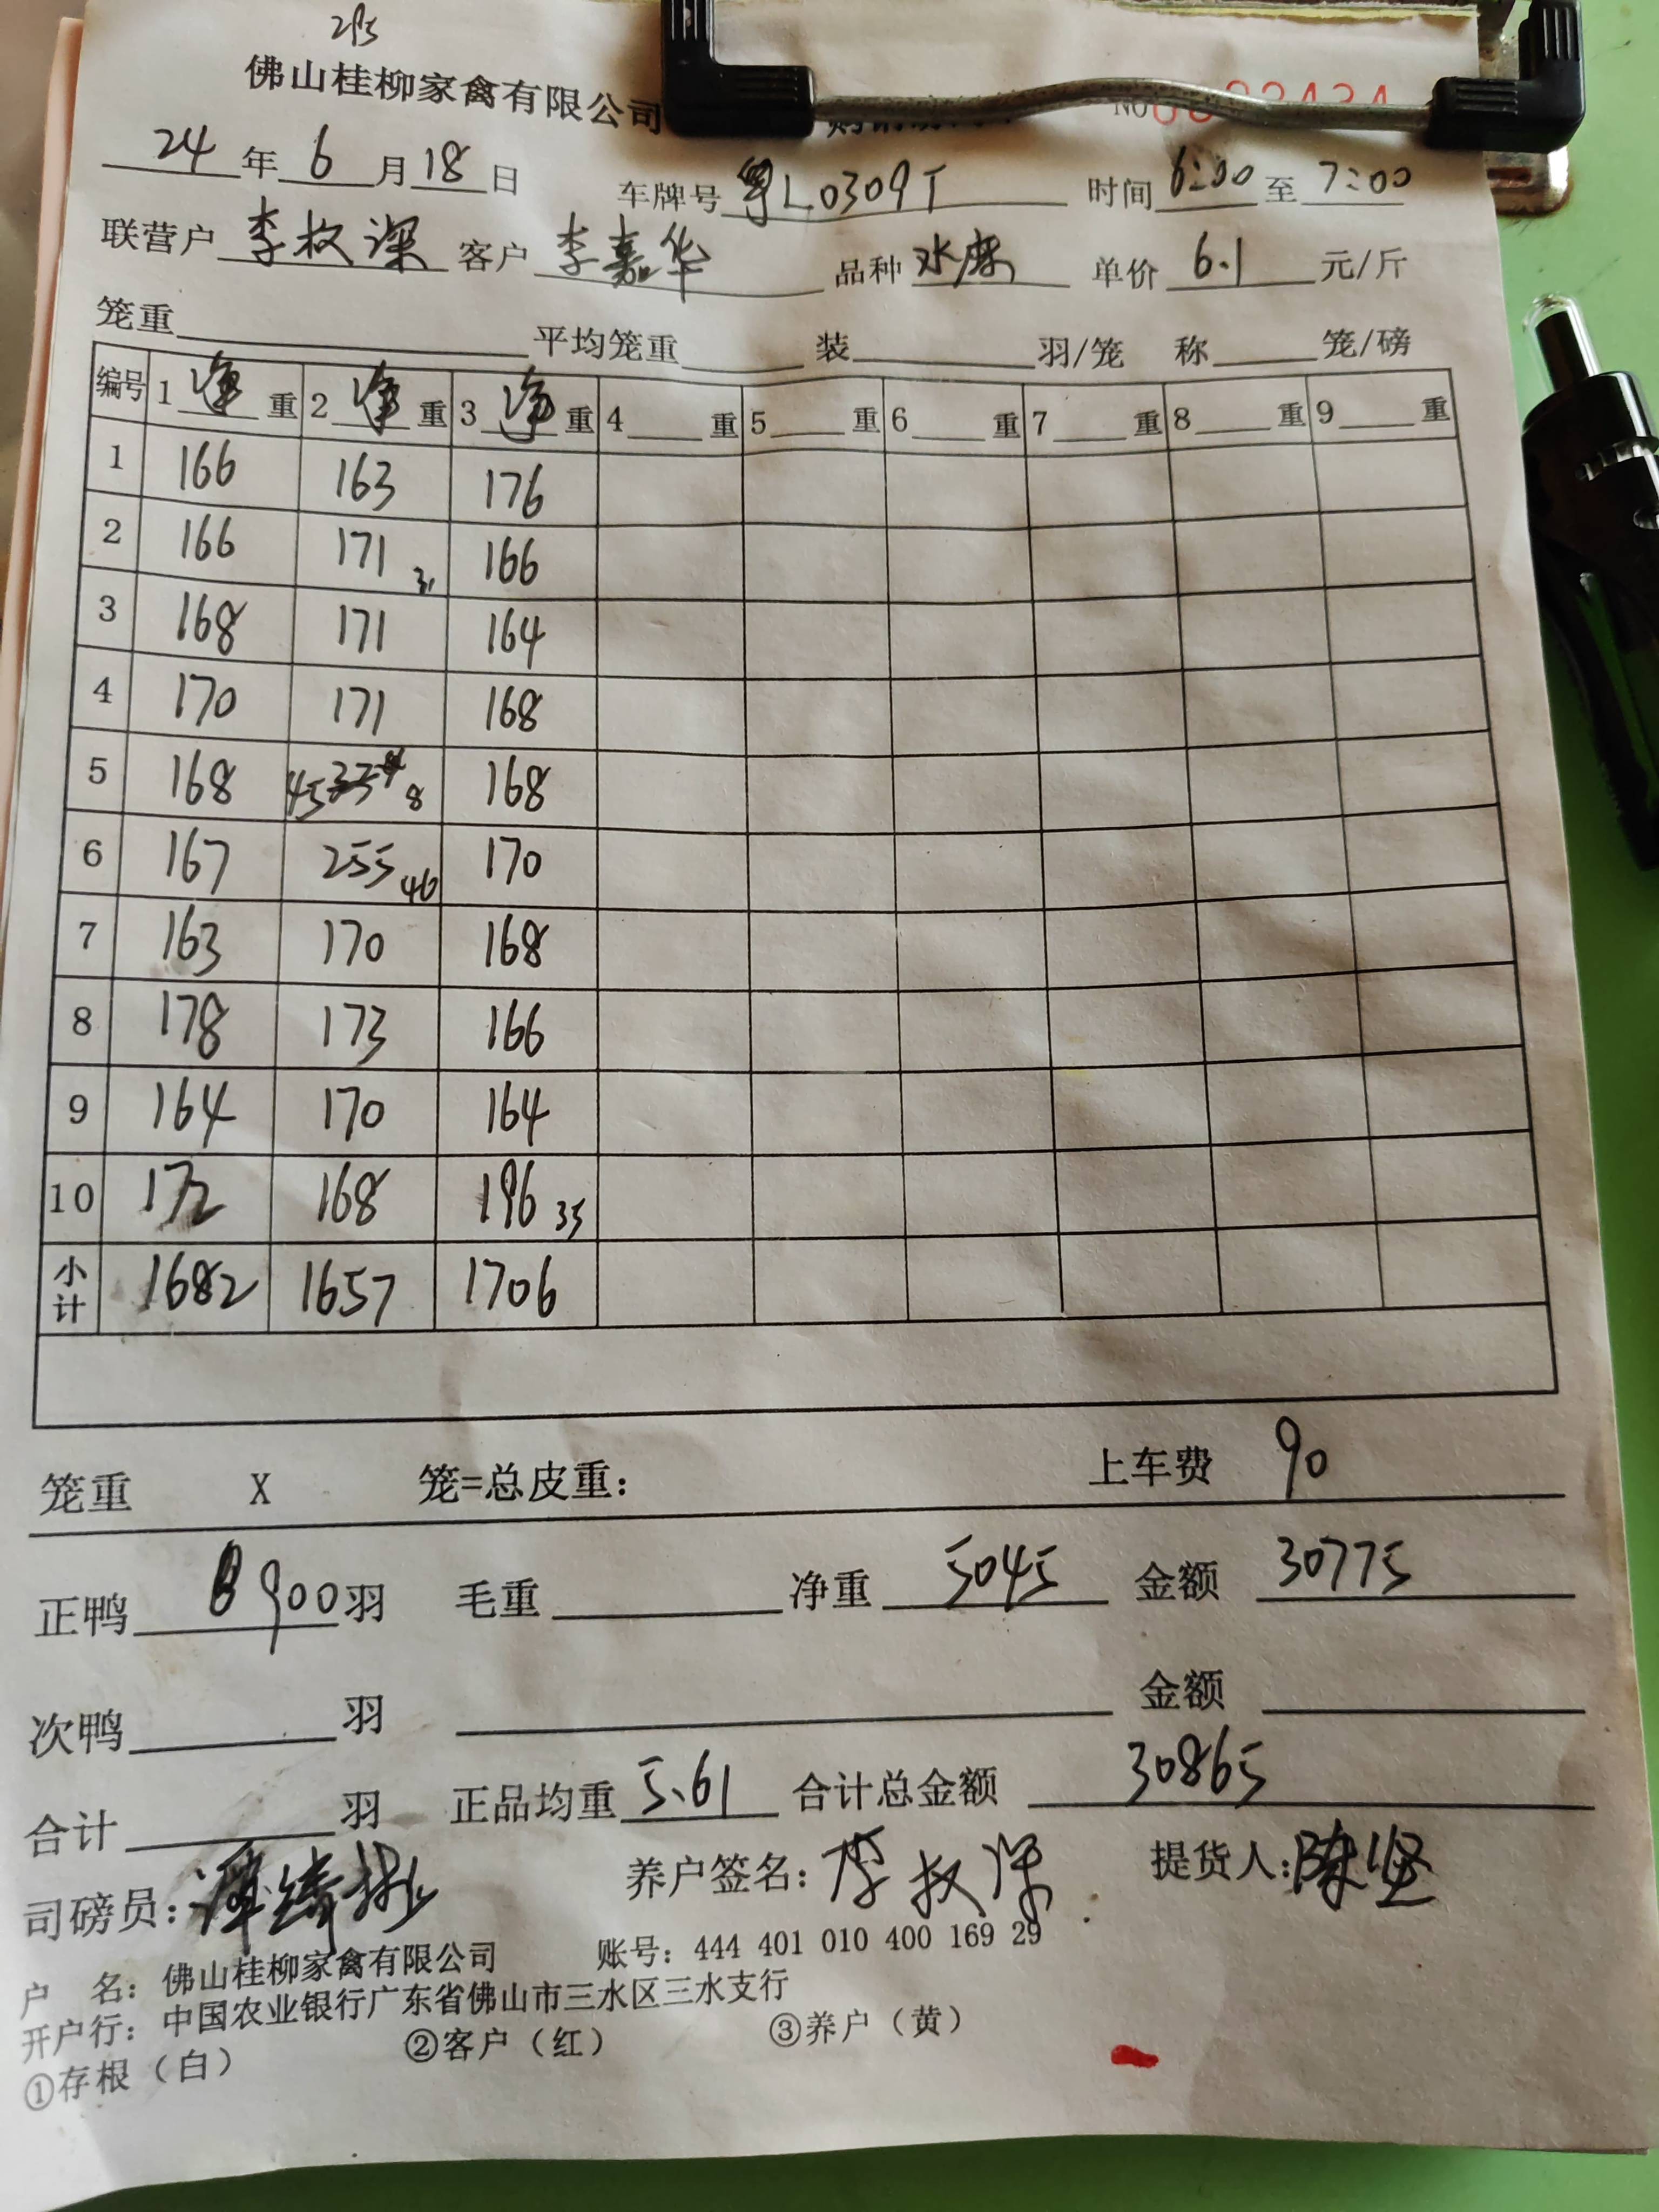 佛山桂柳家禽有限公司
24年6月18日 车牌号 粤L0309T 时间 6:00 至 7:00
联营户 李权深 客户 李嘉华 品种 水麻 单价 6.1 元/斤
笼重 平均笼重 装 羽/笼 称 笼/磅
编号 1 净 重 2 净 重 3 净 重 4 重 5 重 6 重 7 重 8 重 9 重
1 166 163 176
2 166 171 31 166
3 168 171 164
4 170 171 168
5 168 45 8 168
6 167 255 46 170
7 163 170 168
8 178 173 166
9 164 170 164
10 172 168 196 35
小计 1682 1657 1706
笼重 X 笼=总皮重: 上车费 90
正鸭 900羽 毛重 净重 5045 金额 30775
次鸭 羽 金额
合计 羽 正品均重 5.61 合计总金额 30865
司磅员: 养户签名: 李权深 提货人: 陈坚
户 名: 佛山桂柳家禽有限公司 账号: 444 401 010 400 169 29
开户行: 中国农业银行广东省佛山市三水区三水支行
①存根(白) ②客户(红) ③养户(黄)